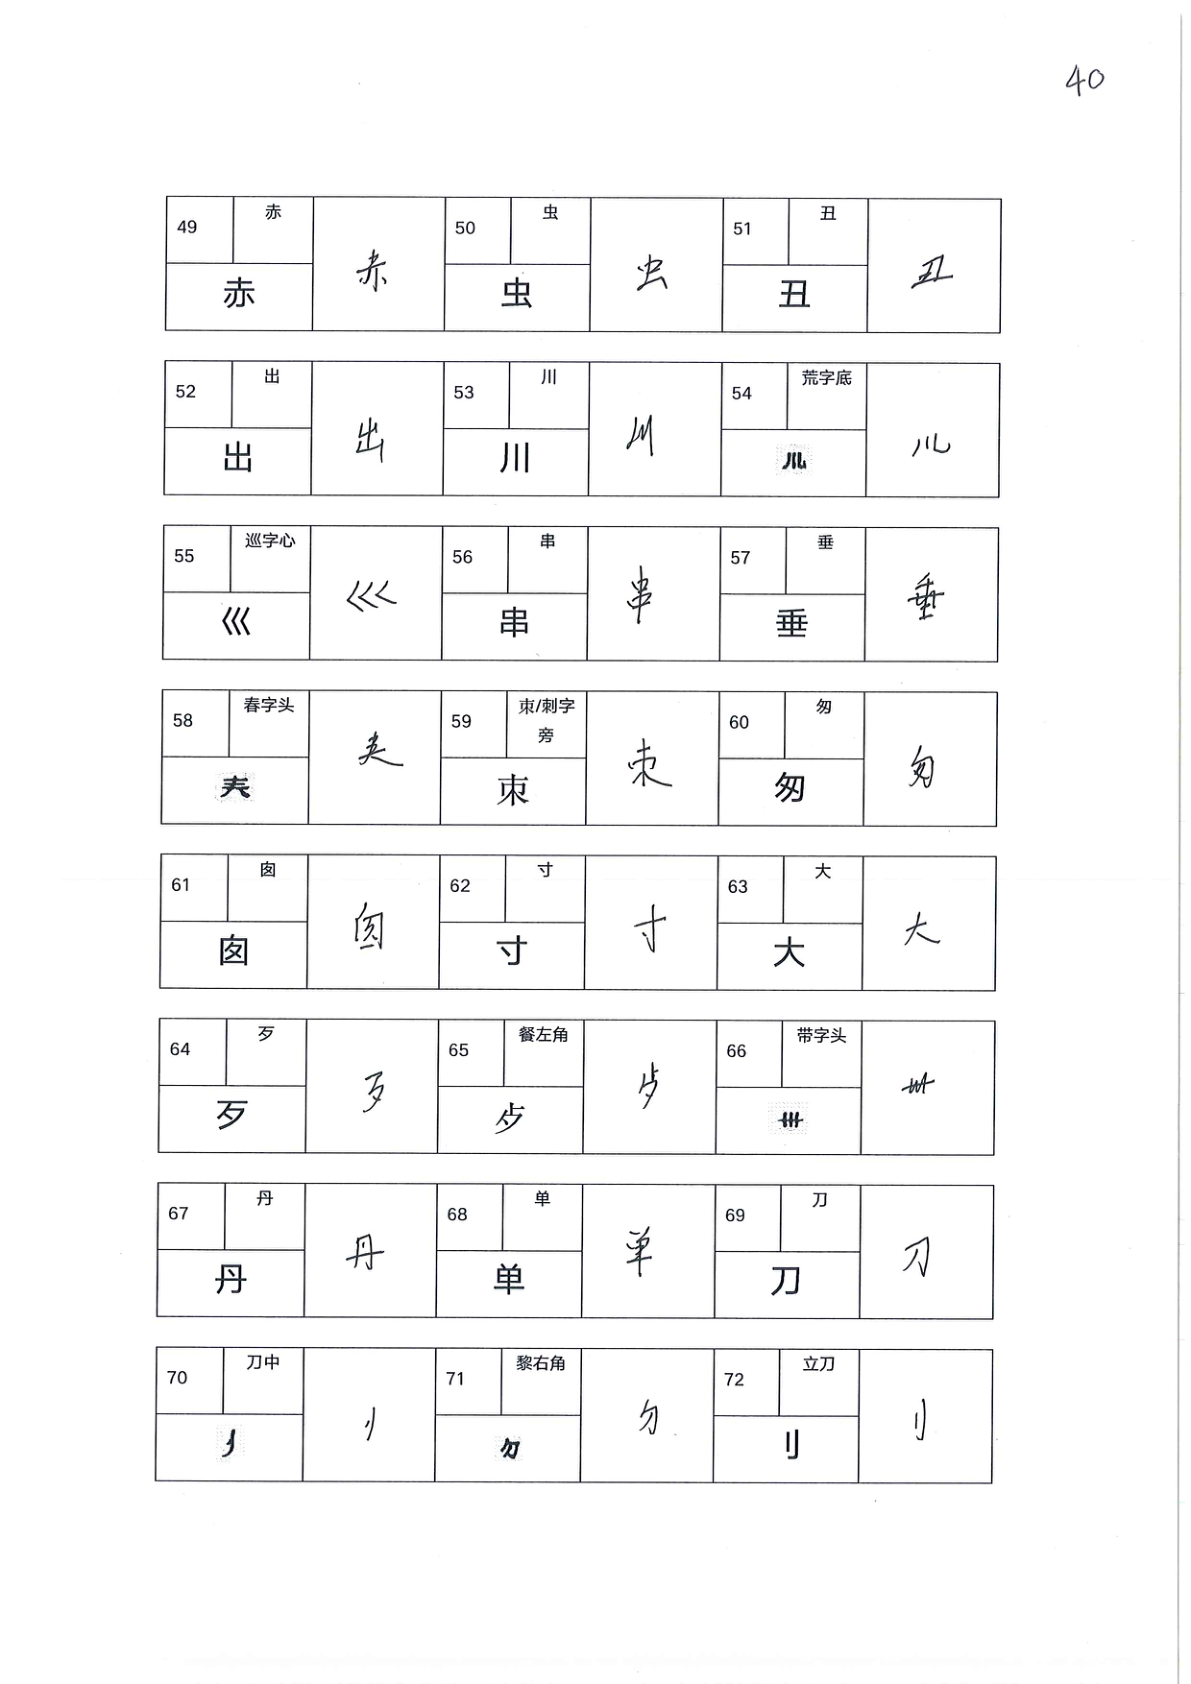 40
49 赤 赤 赤 50 虫 虫 虫 51 丑 丑 丑
52 出 出 出 53 川 川 川 54 荒字底 㐬
55 巡字心 巛 巛 56 串 串 串 57 垂 垂 垂
58 春字头 𡗗 𡗗 59 朿/刺字旁 朿 朿 60 匆 匆 匆
61 囱 囱 囱 62 寸 寸 寸 63 大 大 大
64 歹 歹 歹 65 餐左角 歺 歺 66 带字头 卌 卌
67 丹 丹 丹 68 单 单 单 69 刀 刀 刀
70 刀中 71 黎右角 72 立刀 刂 刂